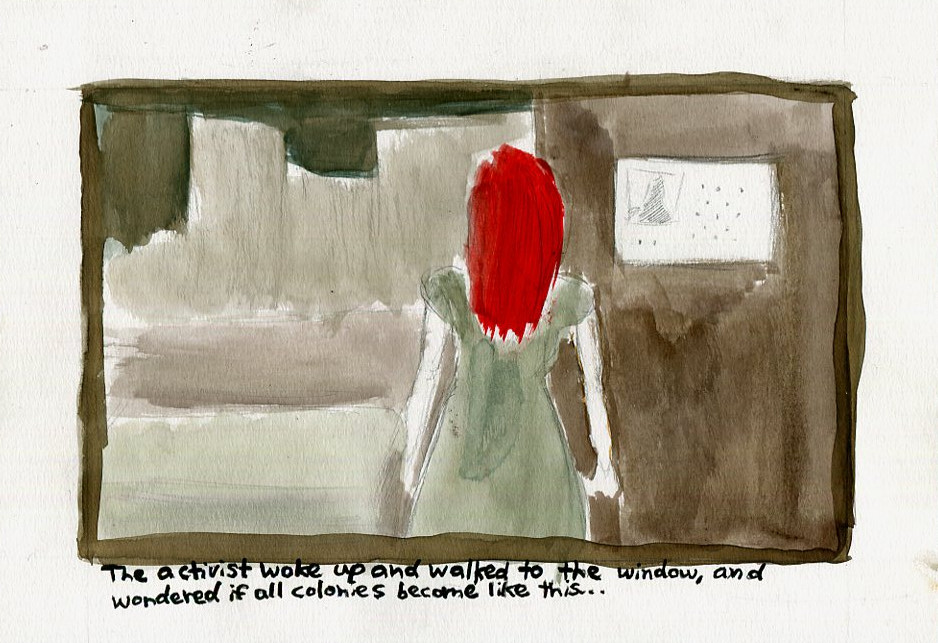 The activist woke up and walked to the window, and
wondered if all colonies become like this...